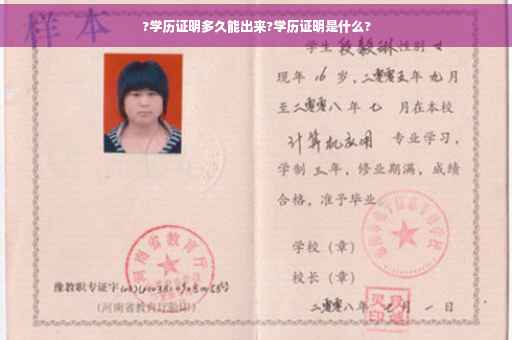 ?学历证明多久能出来?学历证明是什么?
样本
学生段毅琳性别女
现年16岁，二零零五年九月
至二零零八年七月在本校
计算机应用专业学习，
学制三年，修业期满，成绩
合格，准予毕业。
学校（章）
校长（章）
二零零八年 月一日
河南省教育厅
豫教职专证字
（河南省教育厅验印）